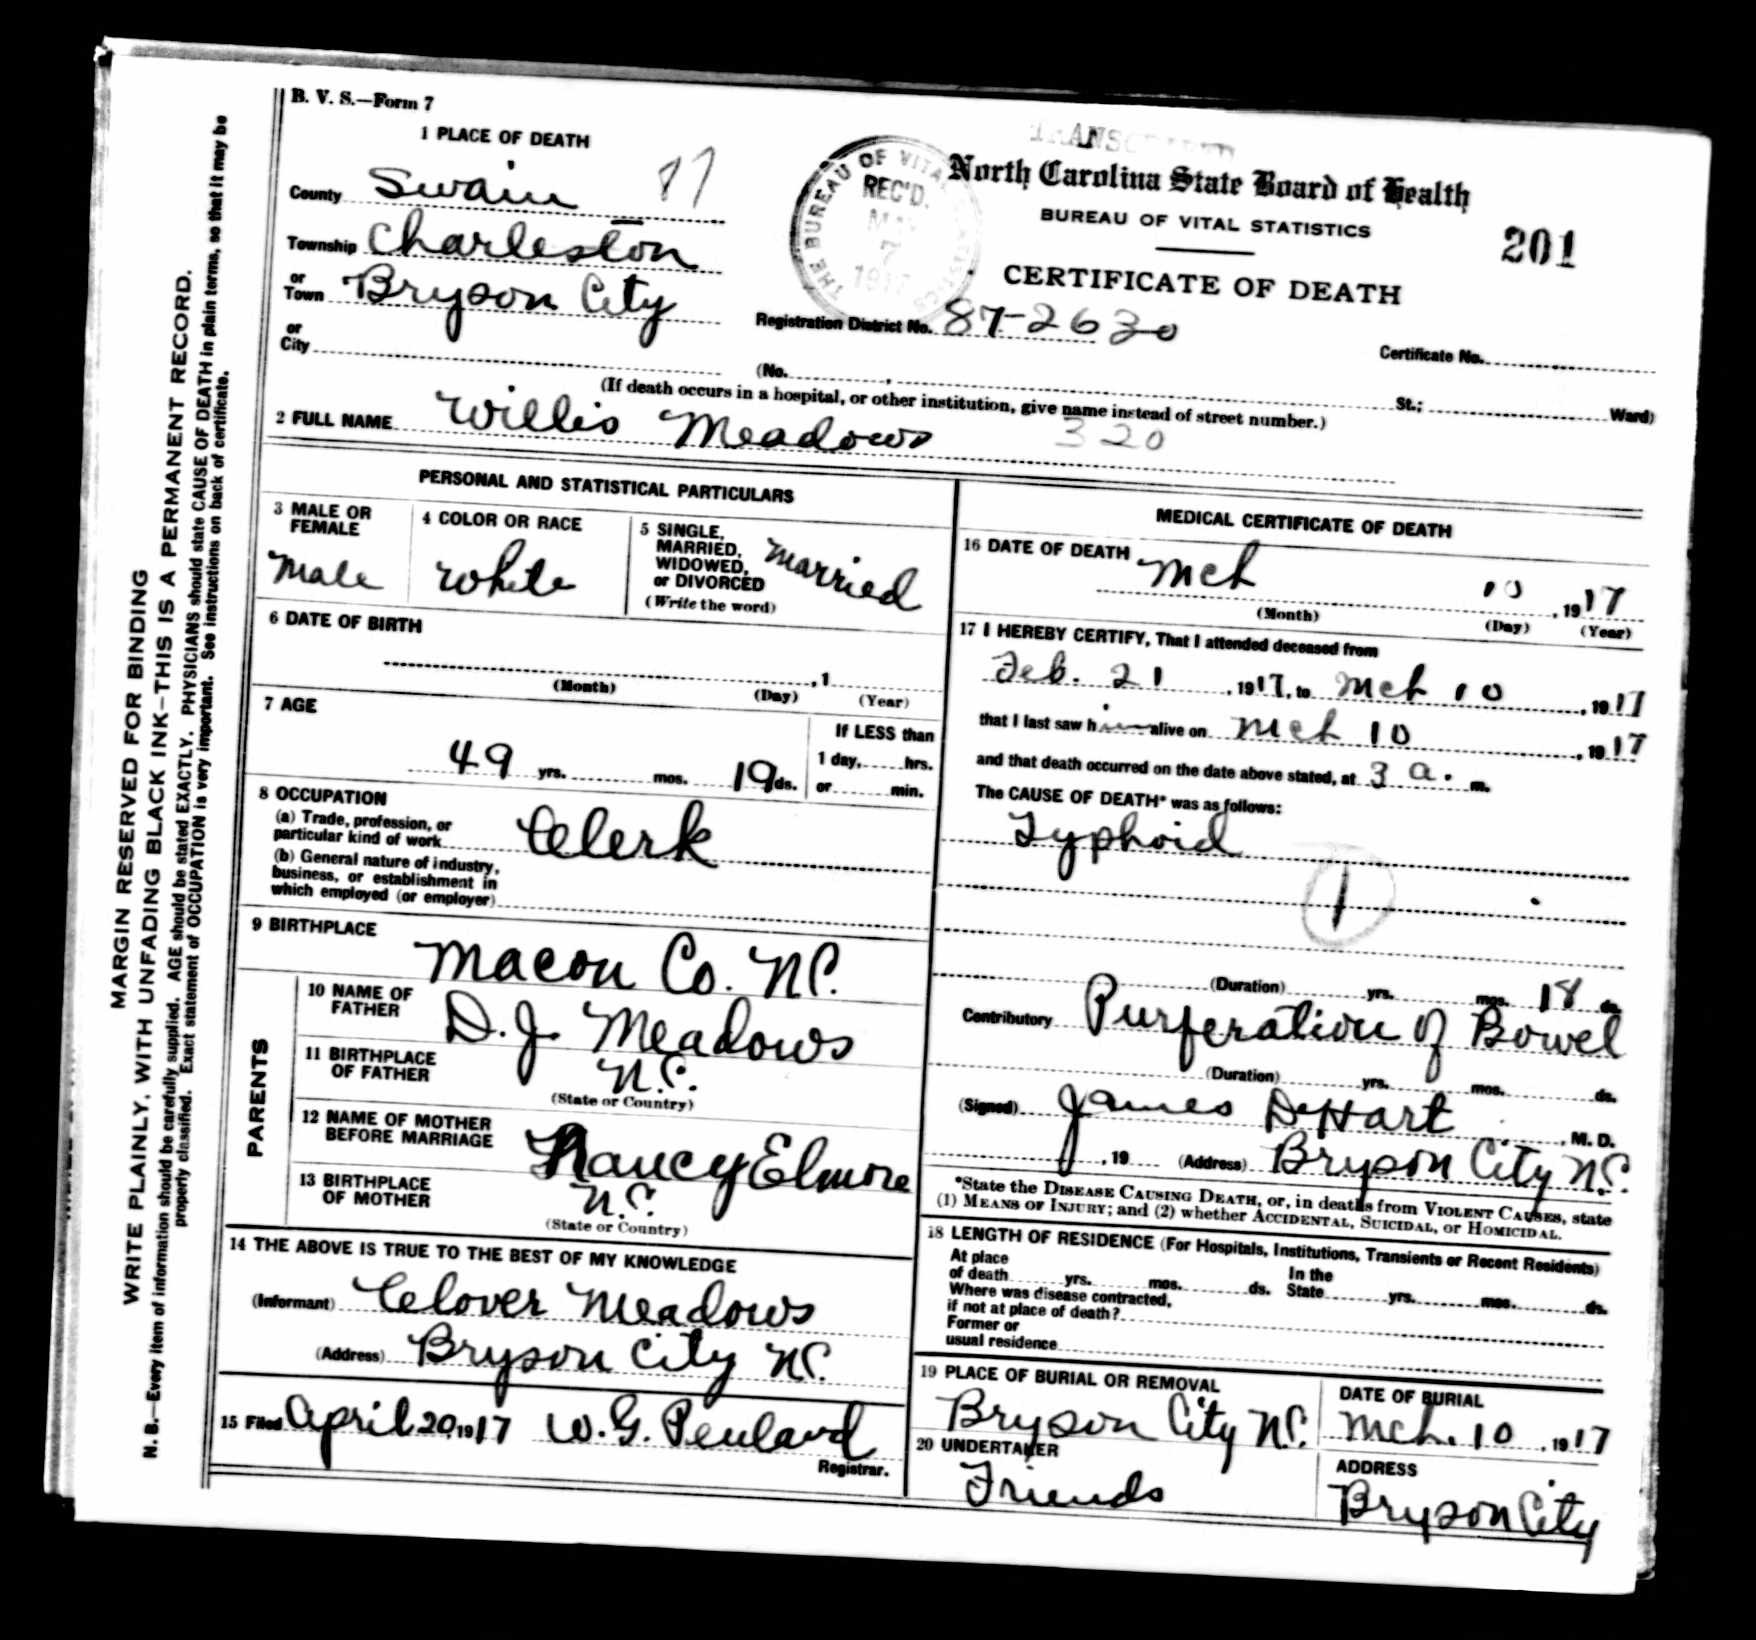 B. V. S.—Form 7
1 PLACE OF DEATH
County Swain
Township Charleston
or
Town Bryson City
or
City
THE BUREAU OF VITAL STATISTICS
REC'D.
7
1917
North Carolina State Board of Health
BUREAU OF VITAL STATISTICS
201
CERTIFICATE OF DEATH
Registration District No. 87-2630
Certificate No.
(No. , St.; Ward)
(If death occurs in a hospital, or other institution, give name instead of street number.)
2 FULL NAME Willis Meadows 320
PERSONAL AND STATISTICAL PARTICULARS
3 MALE OR FEMALE
Male
4 COLOR OR RACE
White
5 SINGLE,
MARRIED,
WIDOWED,
or DIVORCED
(Write the word)
Married
6 DATE OF BIRTH
, 1
(Month) (Day) (Year)
7 AGE
49 yrs. mos. 19 ds.
If LESS than
1 day, hrs.
or min.
8 OCCUPATION
(a) Trade, profession, or
particular kind of work Clerk
(b) General nature of industry,
business, or establishment in
which employed (or employer)
9 BIRTHPLACE
Macon Co. N.C.
PARENTS
10 NAME OF
FATHER D. J. Meadows
11 BIRTHPLACE
OF FATHER N.C.
(State or Country)
12 NAME OF MOTHER
BEFORE MARRIAGE Nancy Elmore
13 BIRTHPLACE
OF MOTHER N.C.
(State or Country)
14 THE ABOVE IS TRUE TO THE BEST OF MY KNOWLEDGE
(Informant) Clover Meadows
(Address) Bryson City N.C.
15 Filed April 20, 1917 W. G. Penland
Registrar.
MEDICAL CERTIFICATE OF DEATH
16 DATE OF DEATH Mch 10, 1917
(Month) (Day) (Year)
17 I HEREBY CERTIFY, That I attended deceased from
Feb. 21, 1917, to Mch 10, 1917
that I last saw him alive on Mch 10, 1917
and that death occurred on the date above stated, at 3 a. m.
The CAUSE OF DEATH* was as follows:
Typhoid
1
(Duration) yrs. mos. 18 ds.
Contributory Purferation of Bowel
(Duration) yrs. mos. ds.
(Signed) James DeHart, M. D.
, 19 (Address) Bryson City N.C.
*State the DISEASE CAUSING DEATH, or, in deaths from VIOLENT CAUSES, state
(1) MEANS OF INJURY; and (2) whether ACCIDENTAL, SUICIDAL, or HOMICIDAL.
18 LENGTH OF RESIDENCE (For Hospitals, Institutions, Transients or Recent Residents)
At place
of death yrs. mos. ds.
In the
State yrs. mos. ds.
Where was disease contracted,
if not at place of death?
Former or
usual residence
19 PLACE OF BURIAL OR REMOVAL
Bryson City N.C.
DATE OF BURIAL
Mch. 10, 1917
20 UNDERTAKER
Friends
ADDRESS
Bryson City
MARGIN RESERVED FOR BINDING
WRITE PLAINLY, WITH UNFADING BLACK INK—THIS IS A PERMANENT RECORD.
N. B.—Every item of information should be carefully supplied. AGE should be stated EXACTLY. PHYSICIANS should state CAUSE OF DEATH in plain terms, so that it may be
properly classified. Exact statement of OCCUPATION is very important. See instructions on back of certificate.